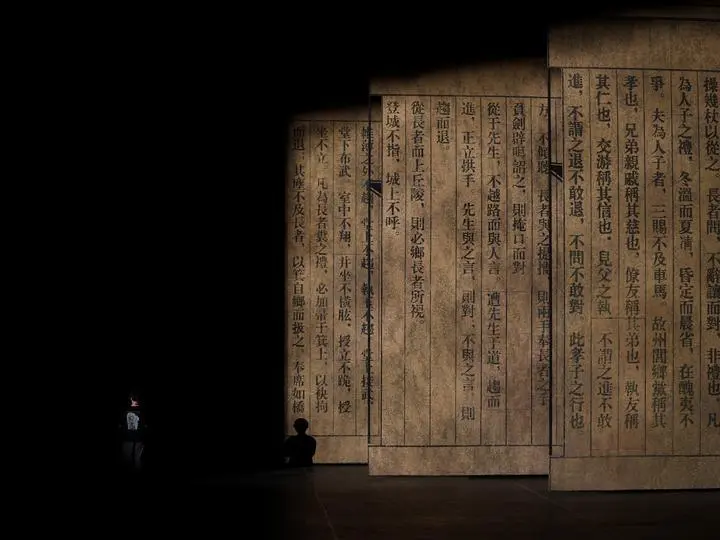 操幾杖以從之。長者問,不辭讓而對,非禮也。凡
為人子之禮,冬溫而夏凊,昏定而晨省,在醜夷不
爭。夫為人子者,三賜不及車馬 故州閭鄉黨稱其
孝也,兄弟親戚稱其慈也,僚友稱其弟也,執友稱
其仁也,交游稱其信也。見父之執 不謂之進不敢
進,不謂之退不敢退,不問不敢對 此孝子之行也。
方,不傾聽 長者與之提攜 則兩手奉長者之手
負劍辟咡詔之,則掩口而對
從于先生,不越路而與人言 遭先生于道,趨而
進,正立拱手 先生與之言 則對,不與之言,則
趨而退
從長者而上丘陵,則必鄉長者所視。
登城不指,城上不呼。
帷薄之外不趨,堂上不趨,執玉不趨 堂上接武,
堂下布武 室中不翔,并坐不橫肱,授立不跪,授
坐不立 凡為長者糞之禮,必加帚于箕上 以袂拘
而退,其塵不及長者,以箕自鄉而扱之。奉席如橋